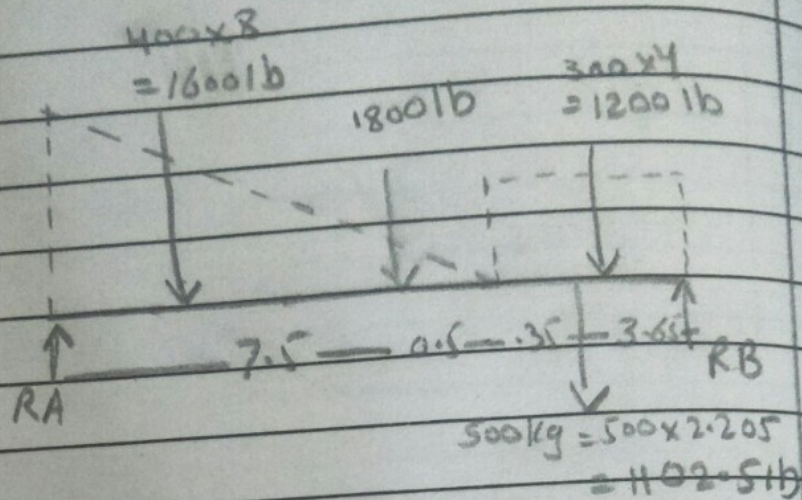 400x8
=1600lb
1800lb
300x4
=1200lb
7.5 0.5 .35 3.65
RA
RB
500kg = 500x2.205
= 1102.5lb